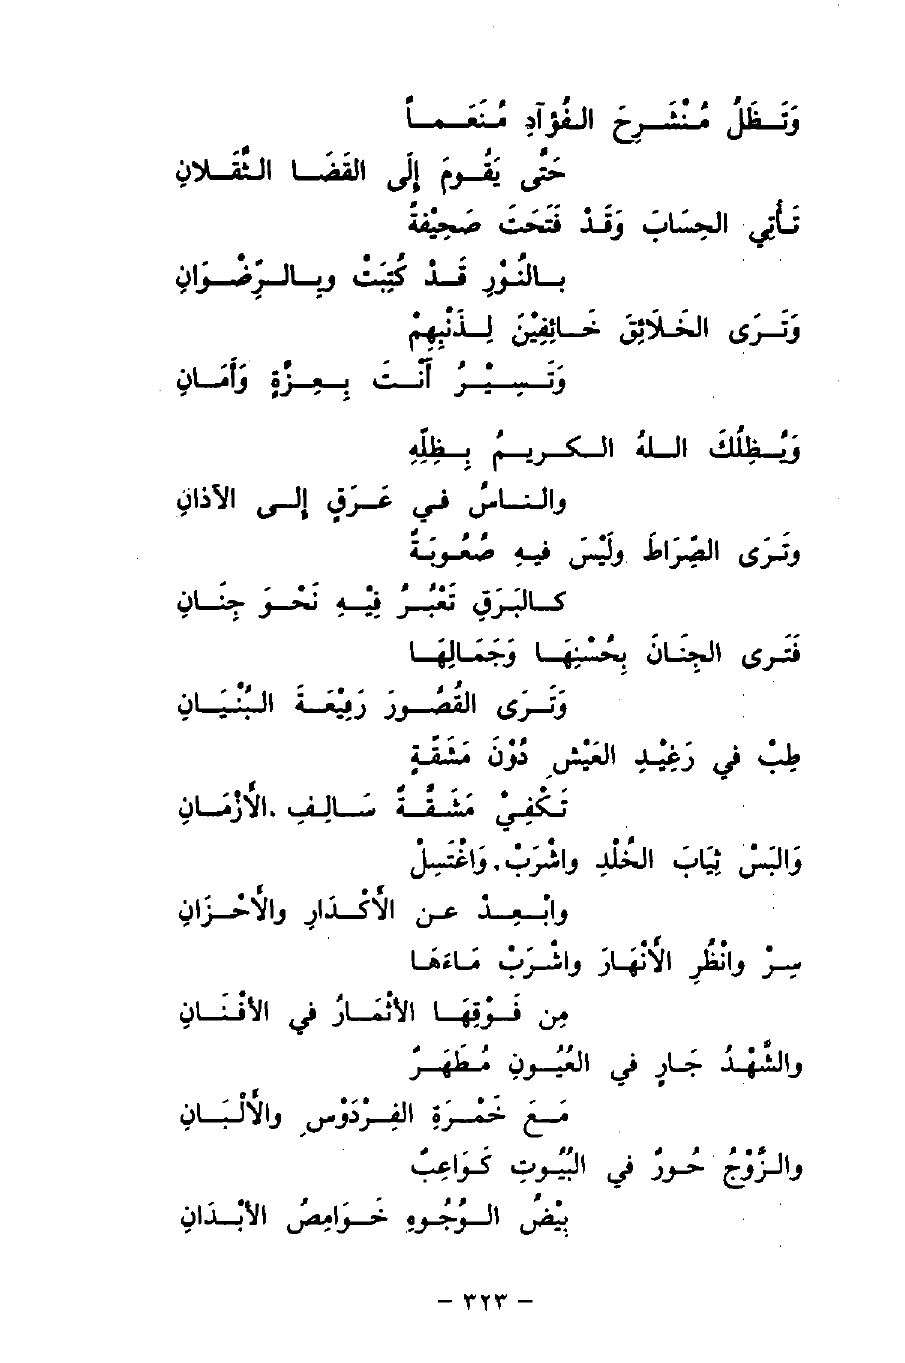 وَتَظَلُّ مُنْشَرِحَ الفُؤَآدِ مُنَعَماً
حَتَّى يَقُومَ إِلَى القَضَا الثَّقَلانِ
تَأْتِي الحِسَابَ وَقَدْ فَتَحْتَ صَحِيْفةً
بالنُوْرِ قَدْ كُتِبَتْ وبِالرِّضْوَانِ
وَتَرَى الخَلَائِقَ خَائِفِيْنَ لِذَنْبِهِمْ
وَتَسِيْرُ أَنْتَ بِعِزَّةٍ وَأَمَانِ
وَيُظِلُّكَ اللهُ الكريمُ بِظِلِّهِ
والناسُ في عَرَقٍ إلى الآذانِ
وتَرَى الصِّرَاطَ ولَيْسَ فيهِ صُعُوبَةً
كالبَرَقِ تَعْبُرُ فِيْهِ نَحْوَ جِنَانِ
فَتَرى الجِنَانَ بِحُسْنِهَا وَجَمَالِهَا
وَتَرَى القُصُورَ رَفِيْعَةَ البُنْيَانِ
طِبْ في رَغِيْدِ العَيْشِ دُوْنَ مَشَقَّةٍ
تَكْفِيْ مَشَقَّةً سَالِفِ الأَزْمَانِ
وَالبَسْ ثِيَابَ الخُلْدِ واشْرَبْ وَاغْتَسِلْ
وابْعِدْ عن الأَكْدَارِ والأَحْزَانِ
سِرْ وانْظُرِ الأَنْهَارَ واشْرَبْ مَاءَهَا
مِن فَوْقِهَا الأثْمَارُ في الأفْنَانِ
والشَّهْدُ جَارٍ في العُيُونِ مُطَهَرٌ
مَعَ خَمْرَةِ الفِرْدَوْسِ والأَلْبَانِ
والزَّوْجُ حُورٌ في البُيُوتِ كَوَاعِبٌ
بِيْضُ الوُجُوهِ خَوَامِصُ الأبْدَانِ
- ٣٢٣ -